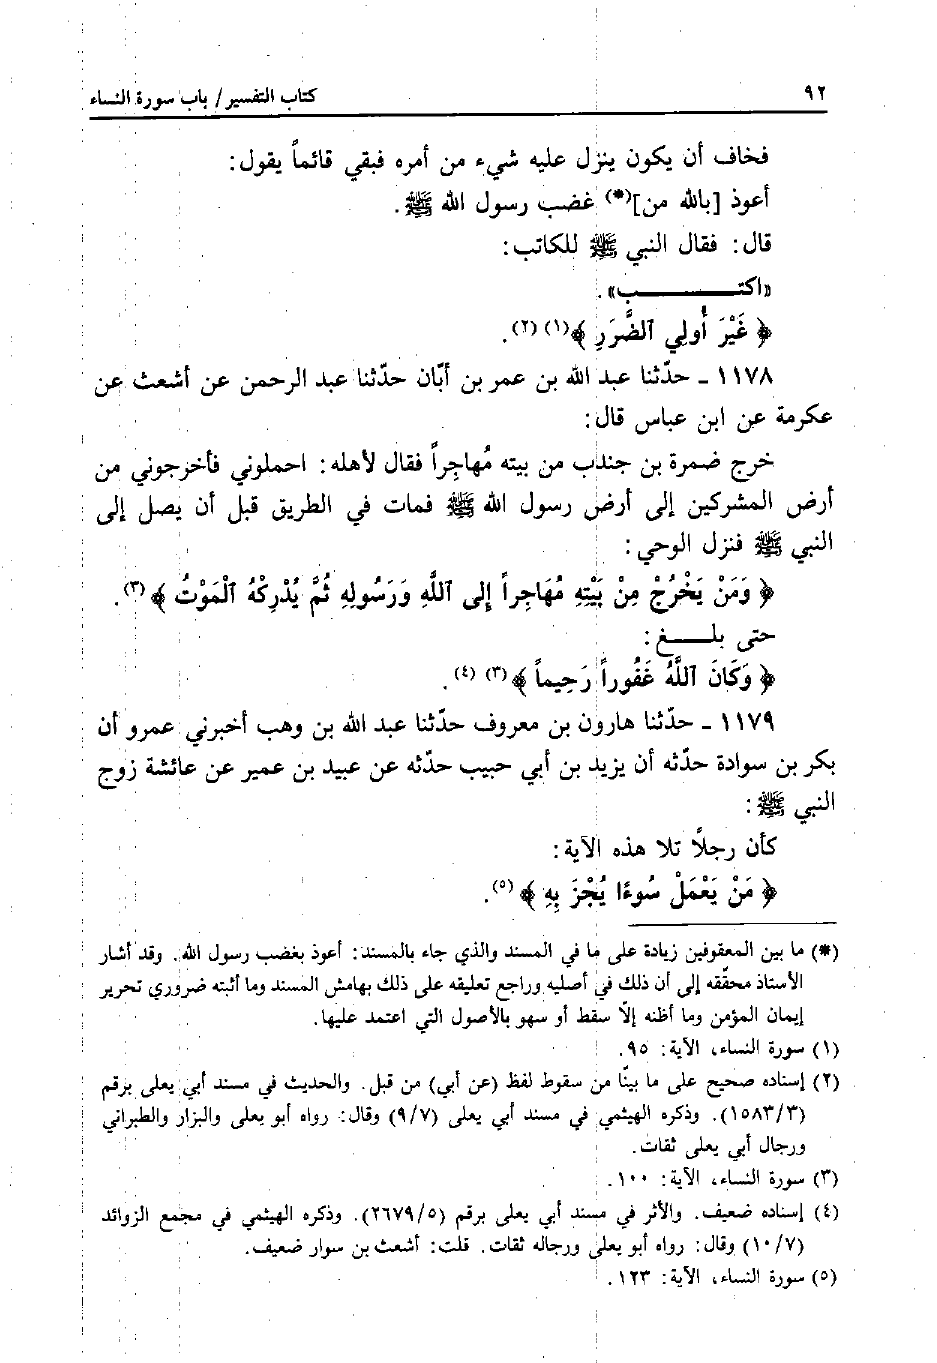 ٩٢
كتاب التفسير/ باب سورة النساء
فخاف أن يكون ينزل عليه شيء من أمره فبقي قائماً يقول:
أعوذ [بالله من](*) غضب رسول الله ﷺ.
قال: فقال النبي ﷺ للكاتب:
«اكتـــــــب».
﴿ غَيْرَ أُولِي ٱلضَّرَرِ ﴾(١) (٢).
١١٧٨ ـ حدّثنا عبد الله بن عمر بن أبّان حدّثنا عبد الرحمن عن أشعث عن
عكرمة عن ابن عباس قال:
خرج ضمرة بن جندب من بيته مُهاجِراً فقال لأهله: احملوني فأخرجوني من
أرض المشركين إلى أرض رسول الله ﷺ فمات في الطريق قبل أن يصل إلى
النبي ﷺ فنزل الوحي:
﴿ وَمَنْ يَخْرُجْ مِنْ بَيْتِهِ مُهَاجِراً إلى ٱللَّهِ وَرَسُولِهِ ثُمَّ يُدْرِكْهُ ٱلْمَوْتُ ﴾(٣).
حتى بلـــــغ:
﴿ وَكَانَ ٱللَّهُ غَفُوراً رَحِيماً ﴾(٣) (٤).
١١٧٩ ـ حدّثنا هارون بن معروف حدّثنا عبد الله بن وهب أخبرني عمرو أن
بكر بن سوادة حدّثه أن يزيد بن أبي حبيب حدّثه عن عبيد بن عمير عن عائشة زوج
النبي ﷺ:
كأن رجلاً تلا هذه الآية:
﴿ مَنْ يَعْمَلْ سُوءًا يُجْزَ بِهِ ﴾(٥).
(*) ما بين المعقوفين زيادة على ما في المسند والذي جاء بالمسند: أعوذ بغضب رسول الله. وقد أشار
الأستاذ محققه إلى أن ذلك في أصليه وراجع تعليقه على ذلك بهامش المسند وما أثبته ضروري تحرير
إيمان المؤمن وما أظنه إلّا سقط أو سهو بالأصول التي اعتمد عليها.
(١) سورة النساء، الآية: ٩٥.
(٢) إسناده صحيح على ما بينّا من سقوط لفظ (عن أبي) من قبل. والحديث في مسند أبي يعلى برقم
(١٥٨٣/٣). وذكره الهيثمي في مسند أبي يعلى (٩/٧) وقال: رواه أبو يعلى والبزار والطبراني
ورجال أبي يعلى ثقات.
(٣) سورة النساء، الآية: ١٠٠.
(٤) إسناده ضعيف. والأثر في مسند أبي يعلى برقم (٢٦٧٩/٥). وذكره الهيثمي في مجمع الزوائد
(١٠/٧) وقال: رواه أبو يعلى ورجاله ثقات. قلت: أشعث بن سوار ضعيف.
(٥) سورة النساء، الآية: ١٢٣.